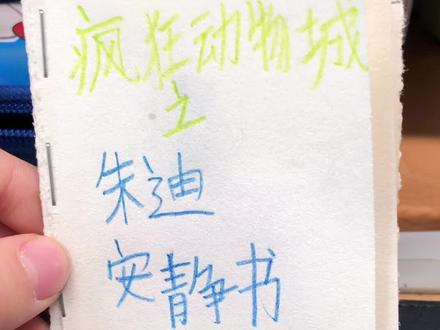 疯狂动物城
之
朱迪
安静书